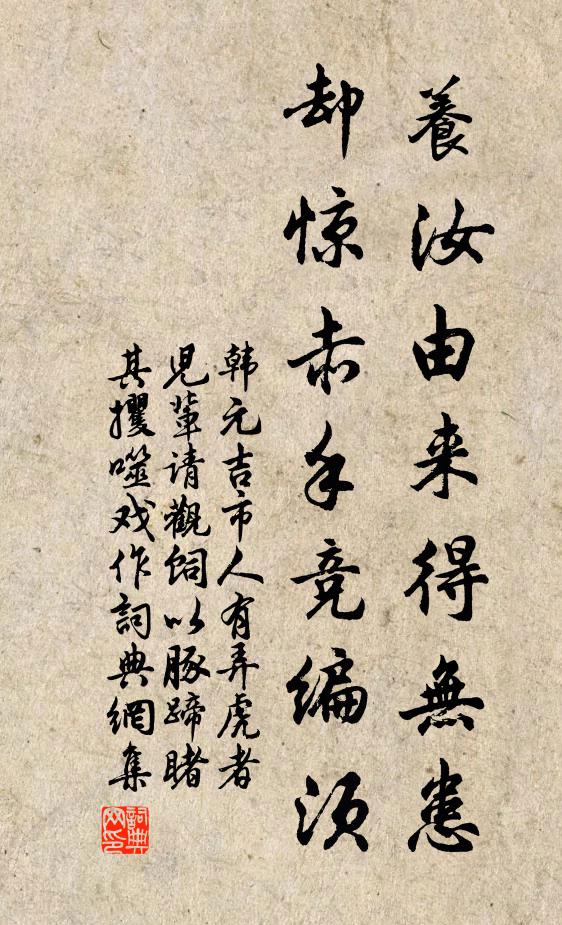 養汝由来得無患
却惊赤手竞编须
韩元吉市人有弄虎者
児輩请觀饲以豚蹄睹
其攫噬戏作詞典網集
詞典网印